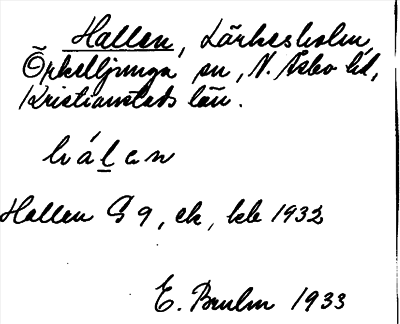 Hallen, Lärkesholm,
Örkelljunga sn, N. Åsbo hd,
Kristianstads län.
hálen
Hallen G 9, ek, kb 1932
E. Bruhn 1933